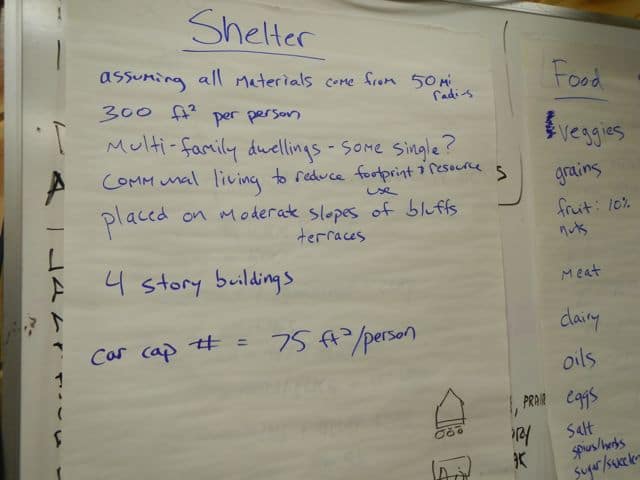 Shelter
assuming all Materials come from 50 mi
radius
300 ft² per person
Multi-family dwellings - some single?
communal living to reduce footprint & resource
use
placed on moderate slopes of bluffs
terraces
4 story buildings
car cap # = 75 ft²/person
Food
Veggies
grains
fruit: 10%
nuts
Meat
dairy
oils
eggs
salt
spices/herbs
sugar/